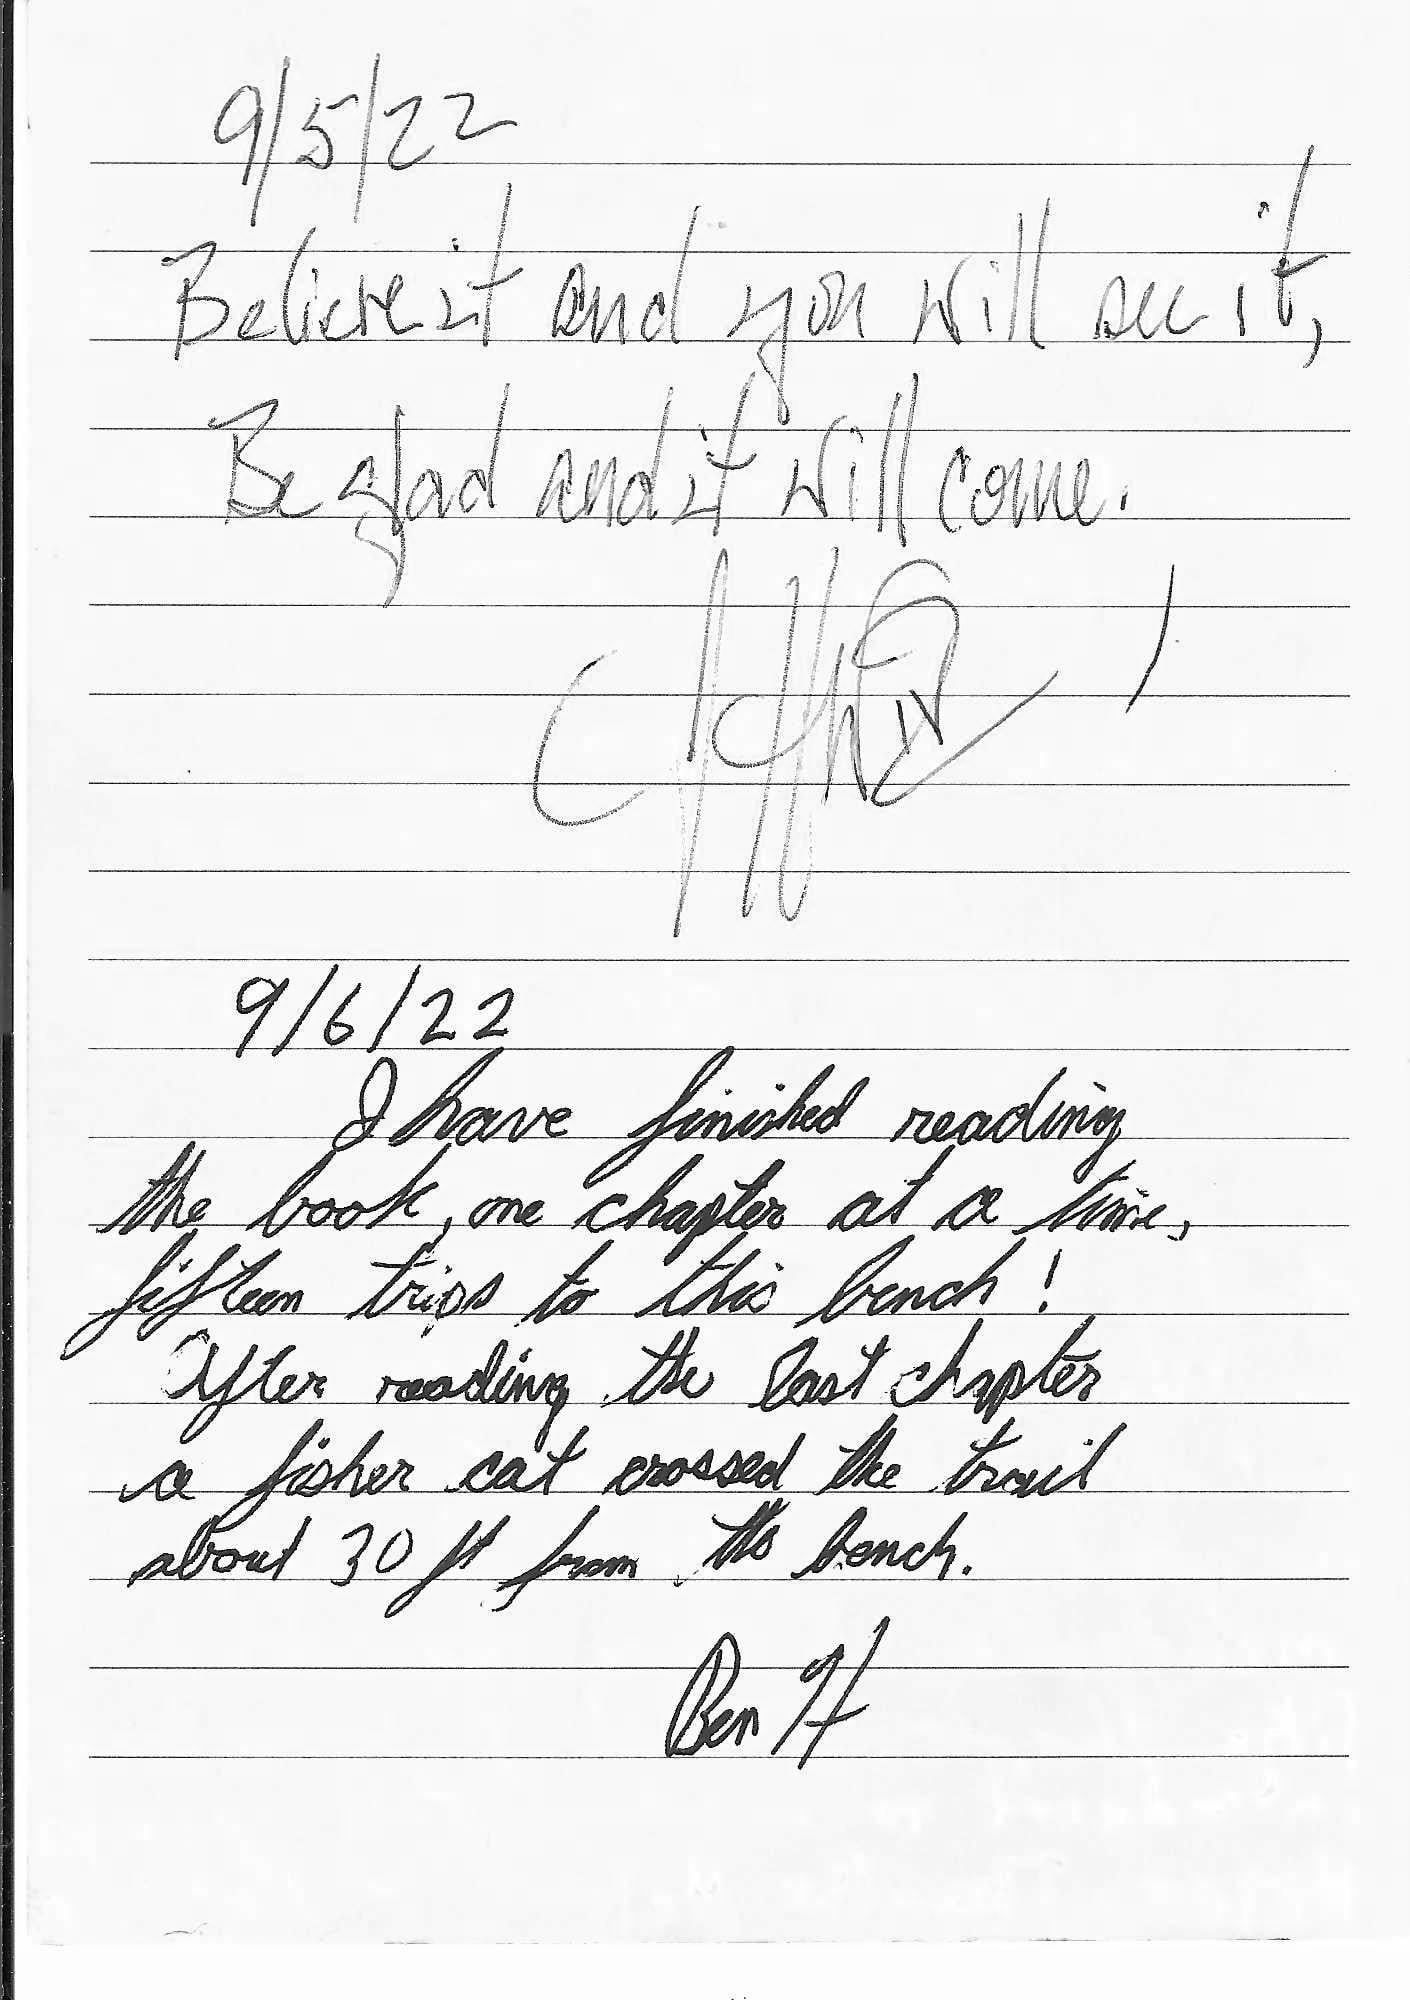 9/5/22
Believe it and you will see it,
Be glad and it will come.
9/6/22
I have finished reading
the book, one chapter at a time,
fifteen trips to this bench!
After reading the last chapter
a fisher cat crossed the trail
about 30 ft from the bench.
Ben H